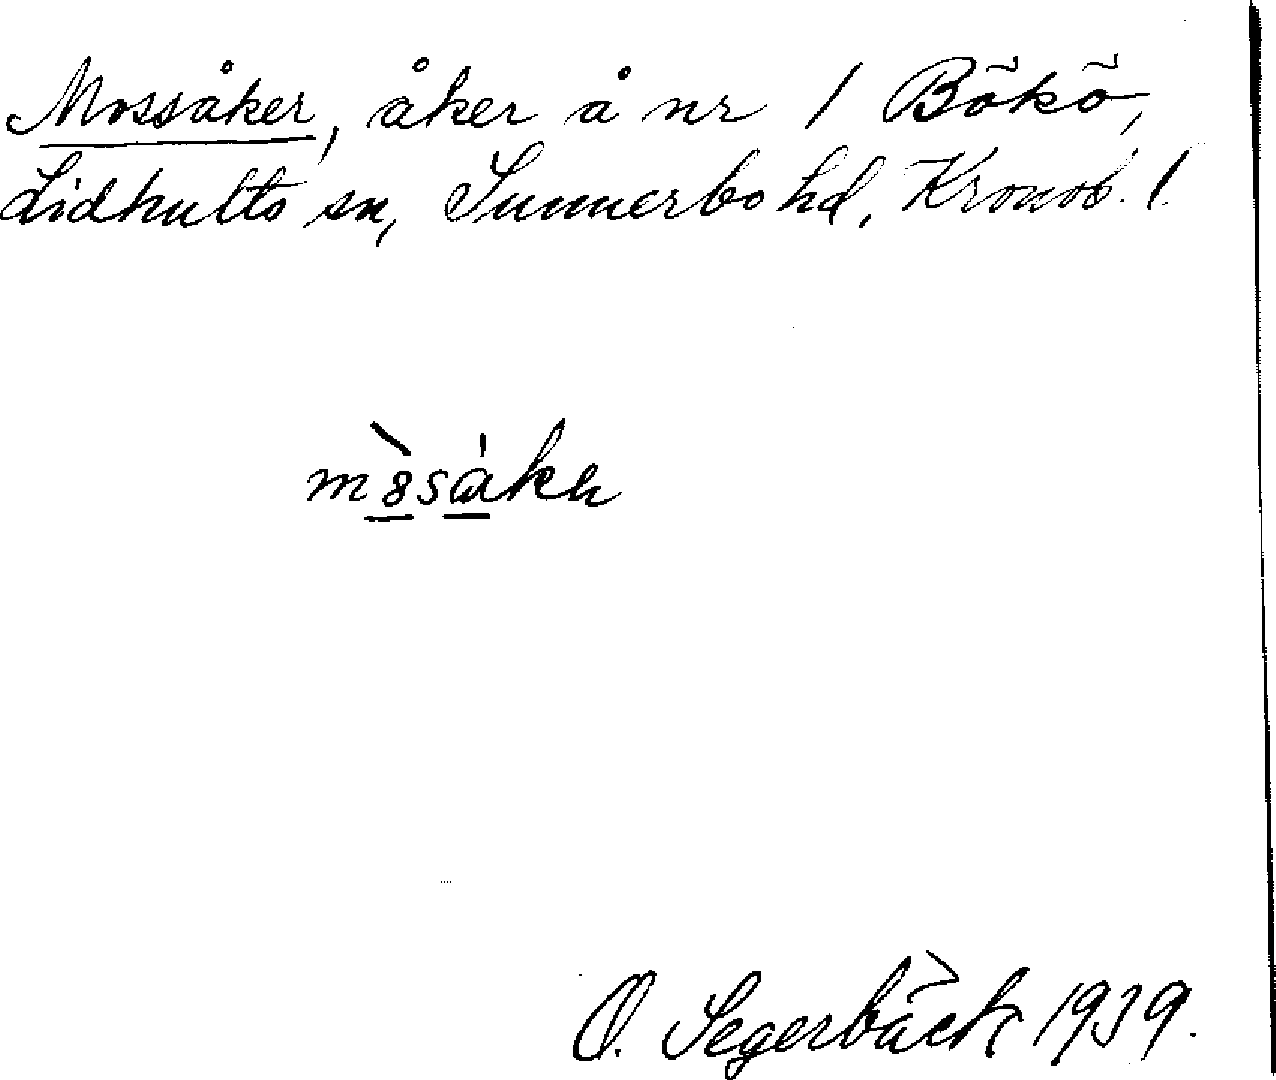 Mossåker, åker å nr 1 Bökö,
Lidhults sn, Sunnerbo hd, Kronob. l.
m8̠̀sɑ̠́kɴ
O. Segerbäck 1939.